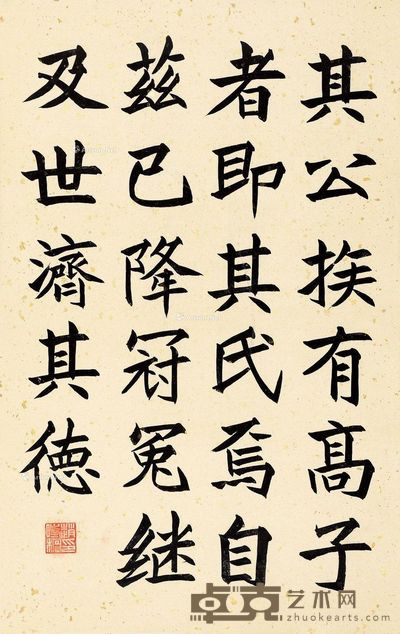 其公族有高子
者即其氏焉自
兹已降冠冕继
及世濟其德
卓克艺术网
www.zhuokearts.com